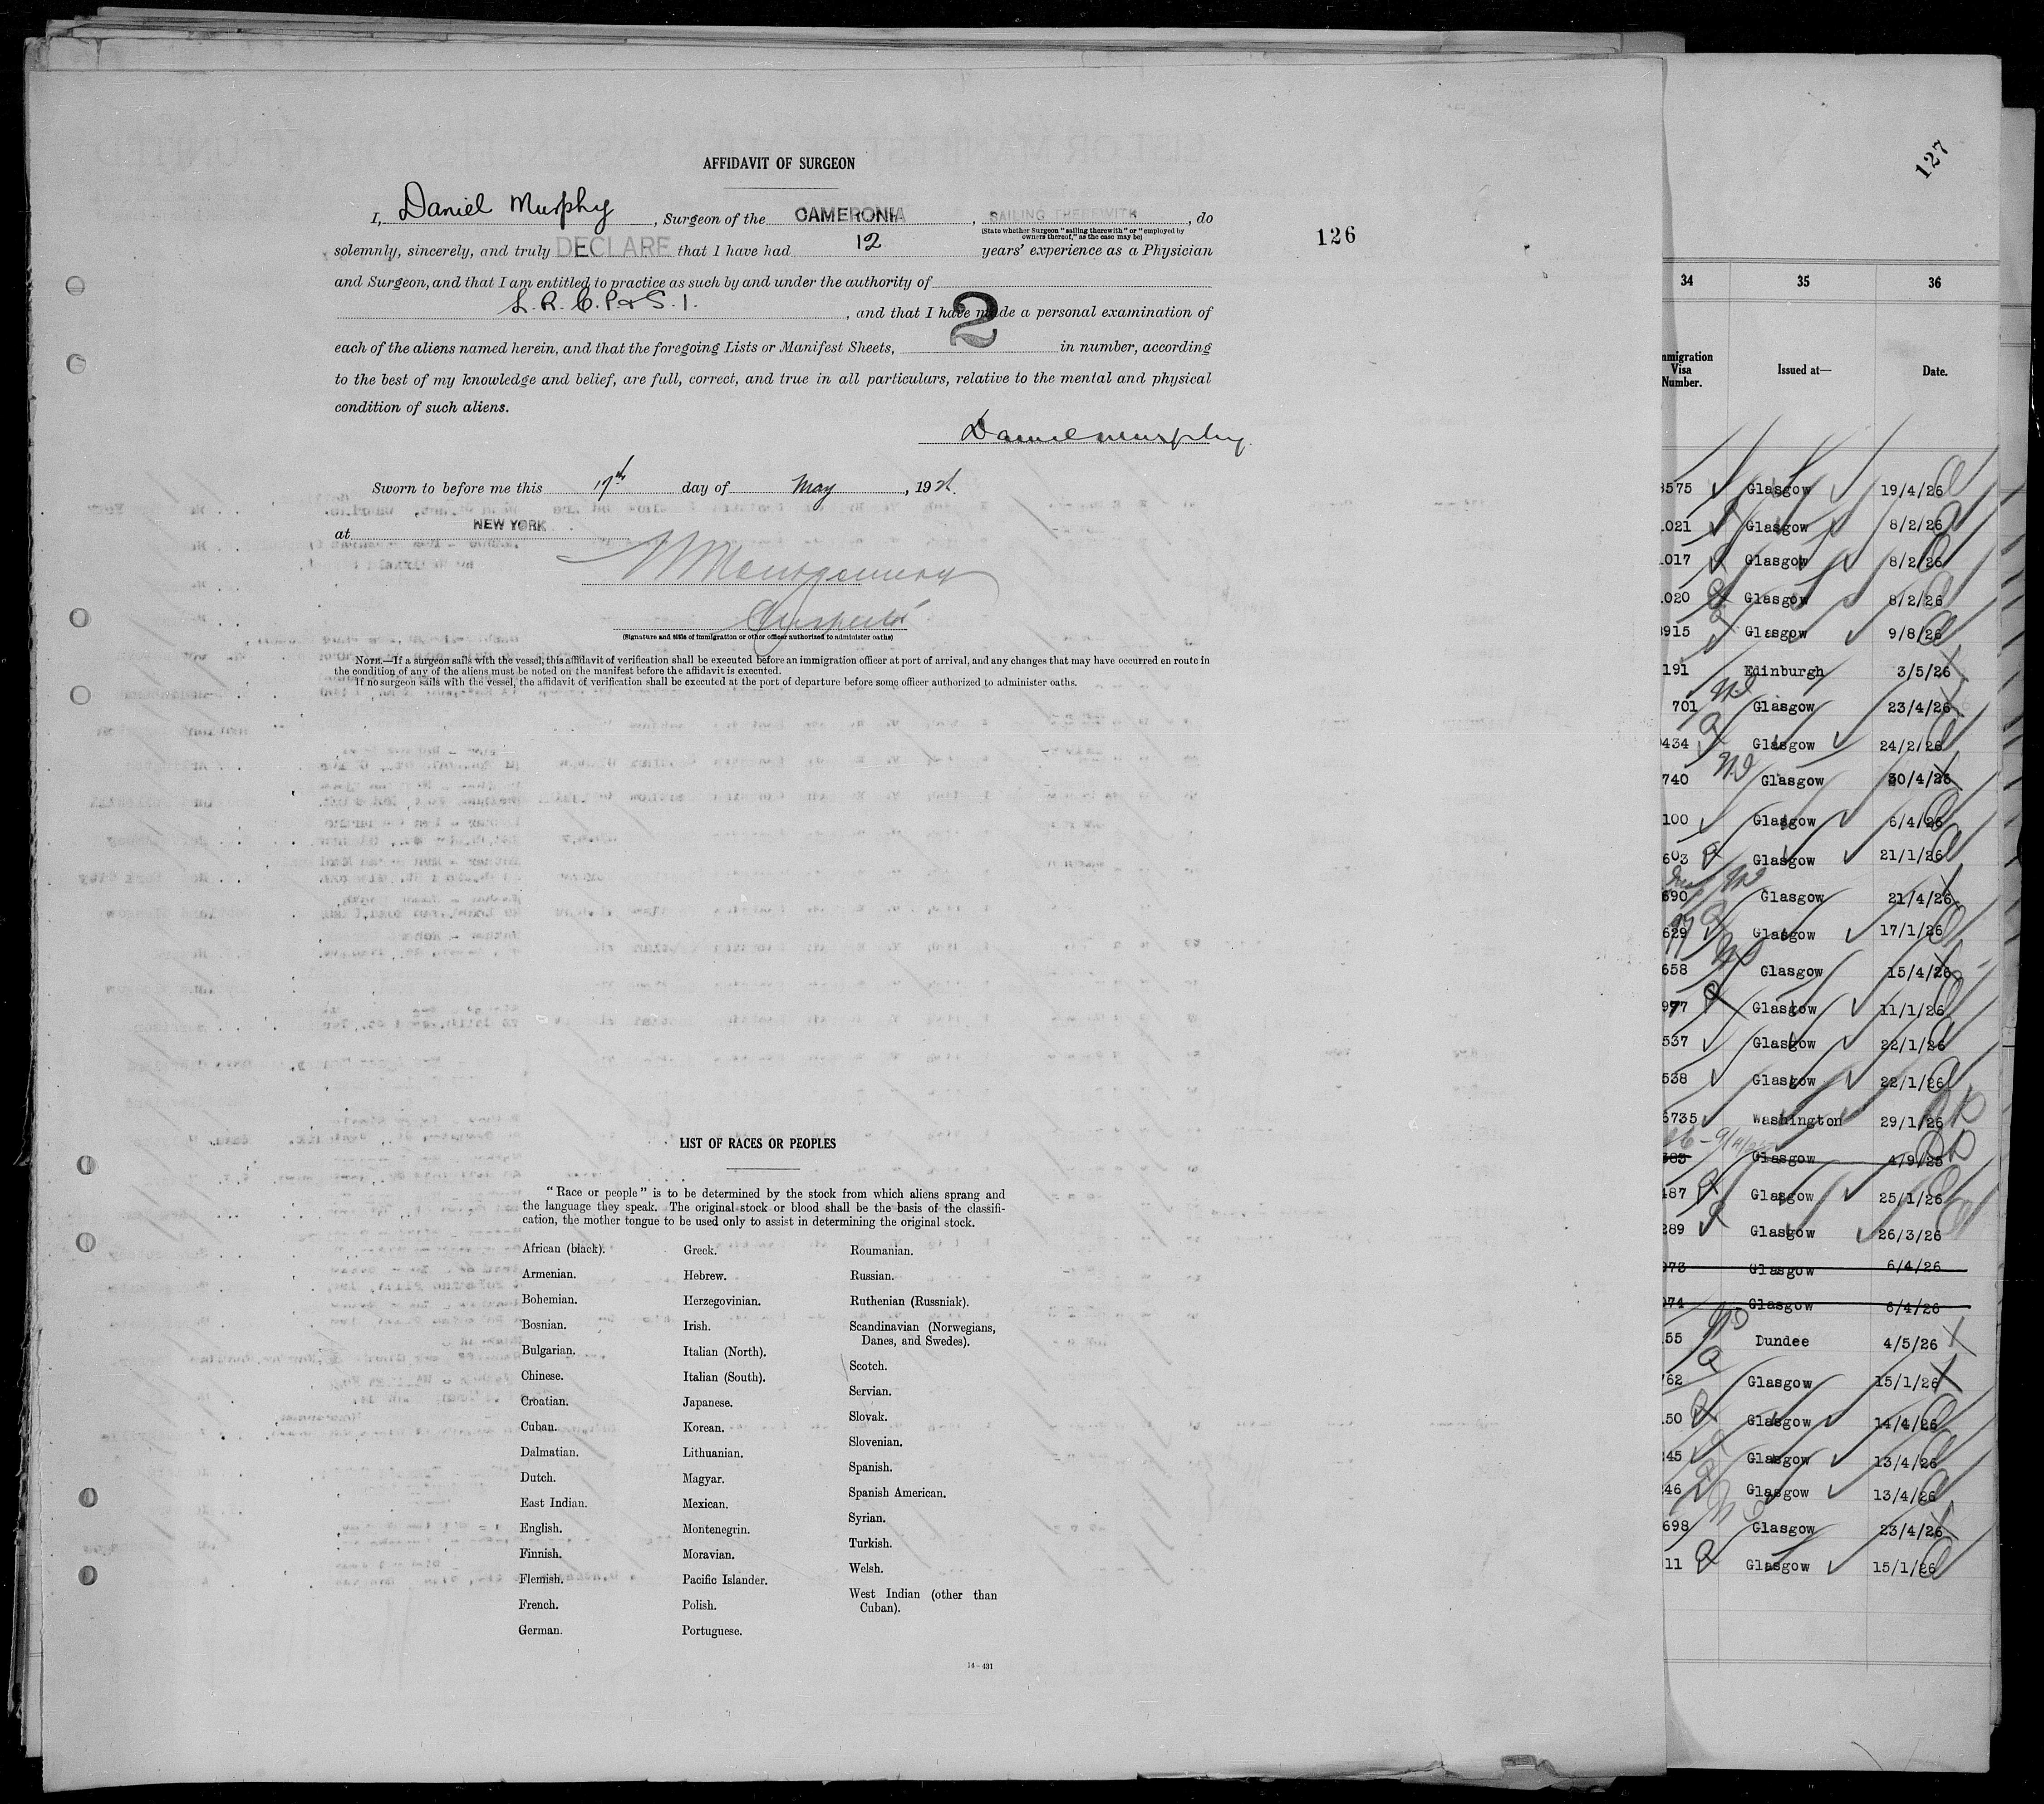 AFFIDAVIT OF SURGEON
I, Daniel Murphy, Surgeon of the CAMERONIA, SAILING THEREWITH, do
(State whether Surgeon "sailing therewith" or "employed by
owners thereof," as the case may be)
solemnly, sincerely, and truly DECLARE that I have had 12 years' experience as a Physician
and Surgeon, and that I am entitled to practice as such by and under the authority of
L. R. C. P. & S. I. , and that I have made a personal examination of
each of the aliens named herein, and that the foregoing Lists or Manifest Sheets, 2 in number, according
to the best of my knowledge and belief, are full, correct, and true in all particulars, relative to the mental and physical
condition of such aliens.
Daniel Murphy.
Sworn to before me this 17th day of May, 192
at NEW YORK
Montgomery
Inspector
(Signature and title of immigration or other officer authorized to administer oaths)
NOTE.—If a surgeon sails with the vessel, this affidavit of verification shall be executed before an immigration officer at port of arrival, and any changes that may have occurred en route in
the condition of any of the aliens must be noted on the manifest before the affidavit is executed.
If no surgeon sails with the vessel, the affidavit of verification shall be executed at the port of departure before some officer authorized to administer oaths.
126
LIST OF RACES OR PEOPLES
"Race or people" is to be determined by the stock from which aliens sprang and
the language they speak. The original stock or blood shall be the basis of the classifi-
cation, the mother tongue to be used only to assist in determining the original stock.
African (black).
Armenian.
Bohemian.
Bosnian.
Bulgarian.
Chinese.
Croatian.
Cuban.
Dalmatian.
Dutch.
East Indian.
English.
Finnish.
Flemish.
French.
German.
Greek.
Hebrew.
Herzegovinian.
Irish.
Italian (North).
Italian (South).
Japanese.
Korean.
Lithuanian.
Magyar.
Mexican.
Montenegrin.
Moravian.
Pacific Islander.
Polish.
Portuguese.
Roumanian.
Russian.
Ruthenian (Russniak).
Scandinavian (Norwegians,
Danes, and Swedes).
Scotch.
Servian.
Slovak.
Slovenian.
Spanish.
Spanish American.
Syrian.
Turkish.
Welsh.
West Indian (other than
Cuban).
14—431
127
34 35 36
mmigration
Visa
Number.
Issued at—
Date.
3575 Glasgow 19/4/26
1021 Glasgow 8/2/26
1017 Glasgow 8/2/26
1020 Glasgow 8/2/26
3915 Glasgow 9/8/26
191 Edinburgh 3/5/26
701 Glasgow 23/4/26
434 Glasgow 24/2/26
740 Glasgow 30/4/26
100 Glasgow 6/4/26
603 Glasgow 21/1/26
690 Glasgow 21/4/26
629 Glasgow 17/1/26
658 Glasgow 15/4/26
997 Glasgow 11/1/26
537 Glasgow 22/1/26
538 Glasgow 22/1/26
5735 Washington 29/1/26
383 Glasgow 4/9/25
487 Glasgow 25/1/26
289 Glasgow 26/3/26
073 Glasgow 6/4/26
074 Glasgow 6/4/26
155 Dundee 4/5/26
762 Glasgow 15/1/26
150 Glasgow 14/4/26
245 Glasgow 13/4/26
246 Glasgow 13/4/26
698 Glasgow 23/4/26
11 Glasgow 15/1/26